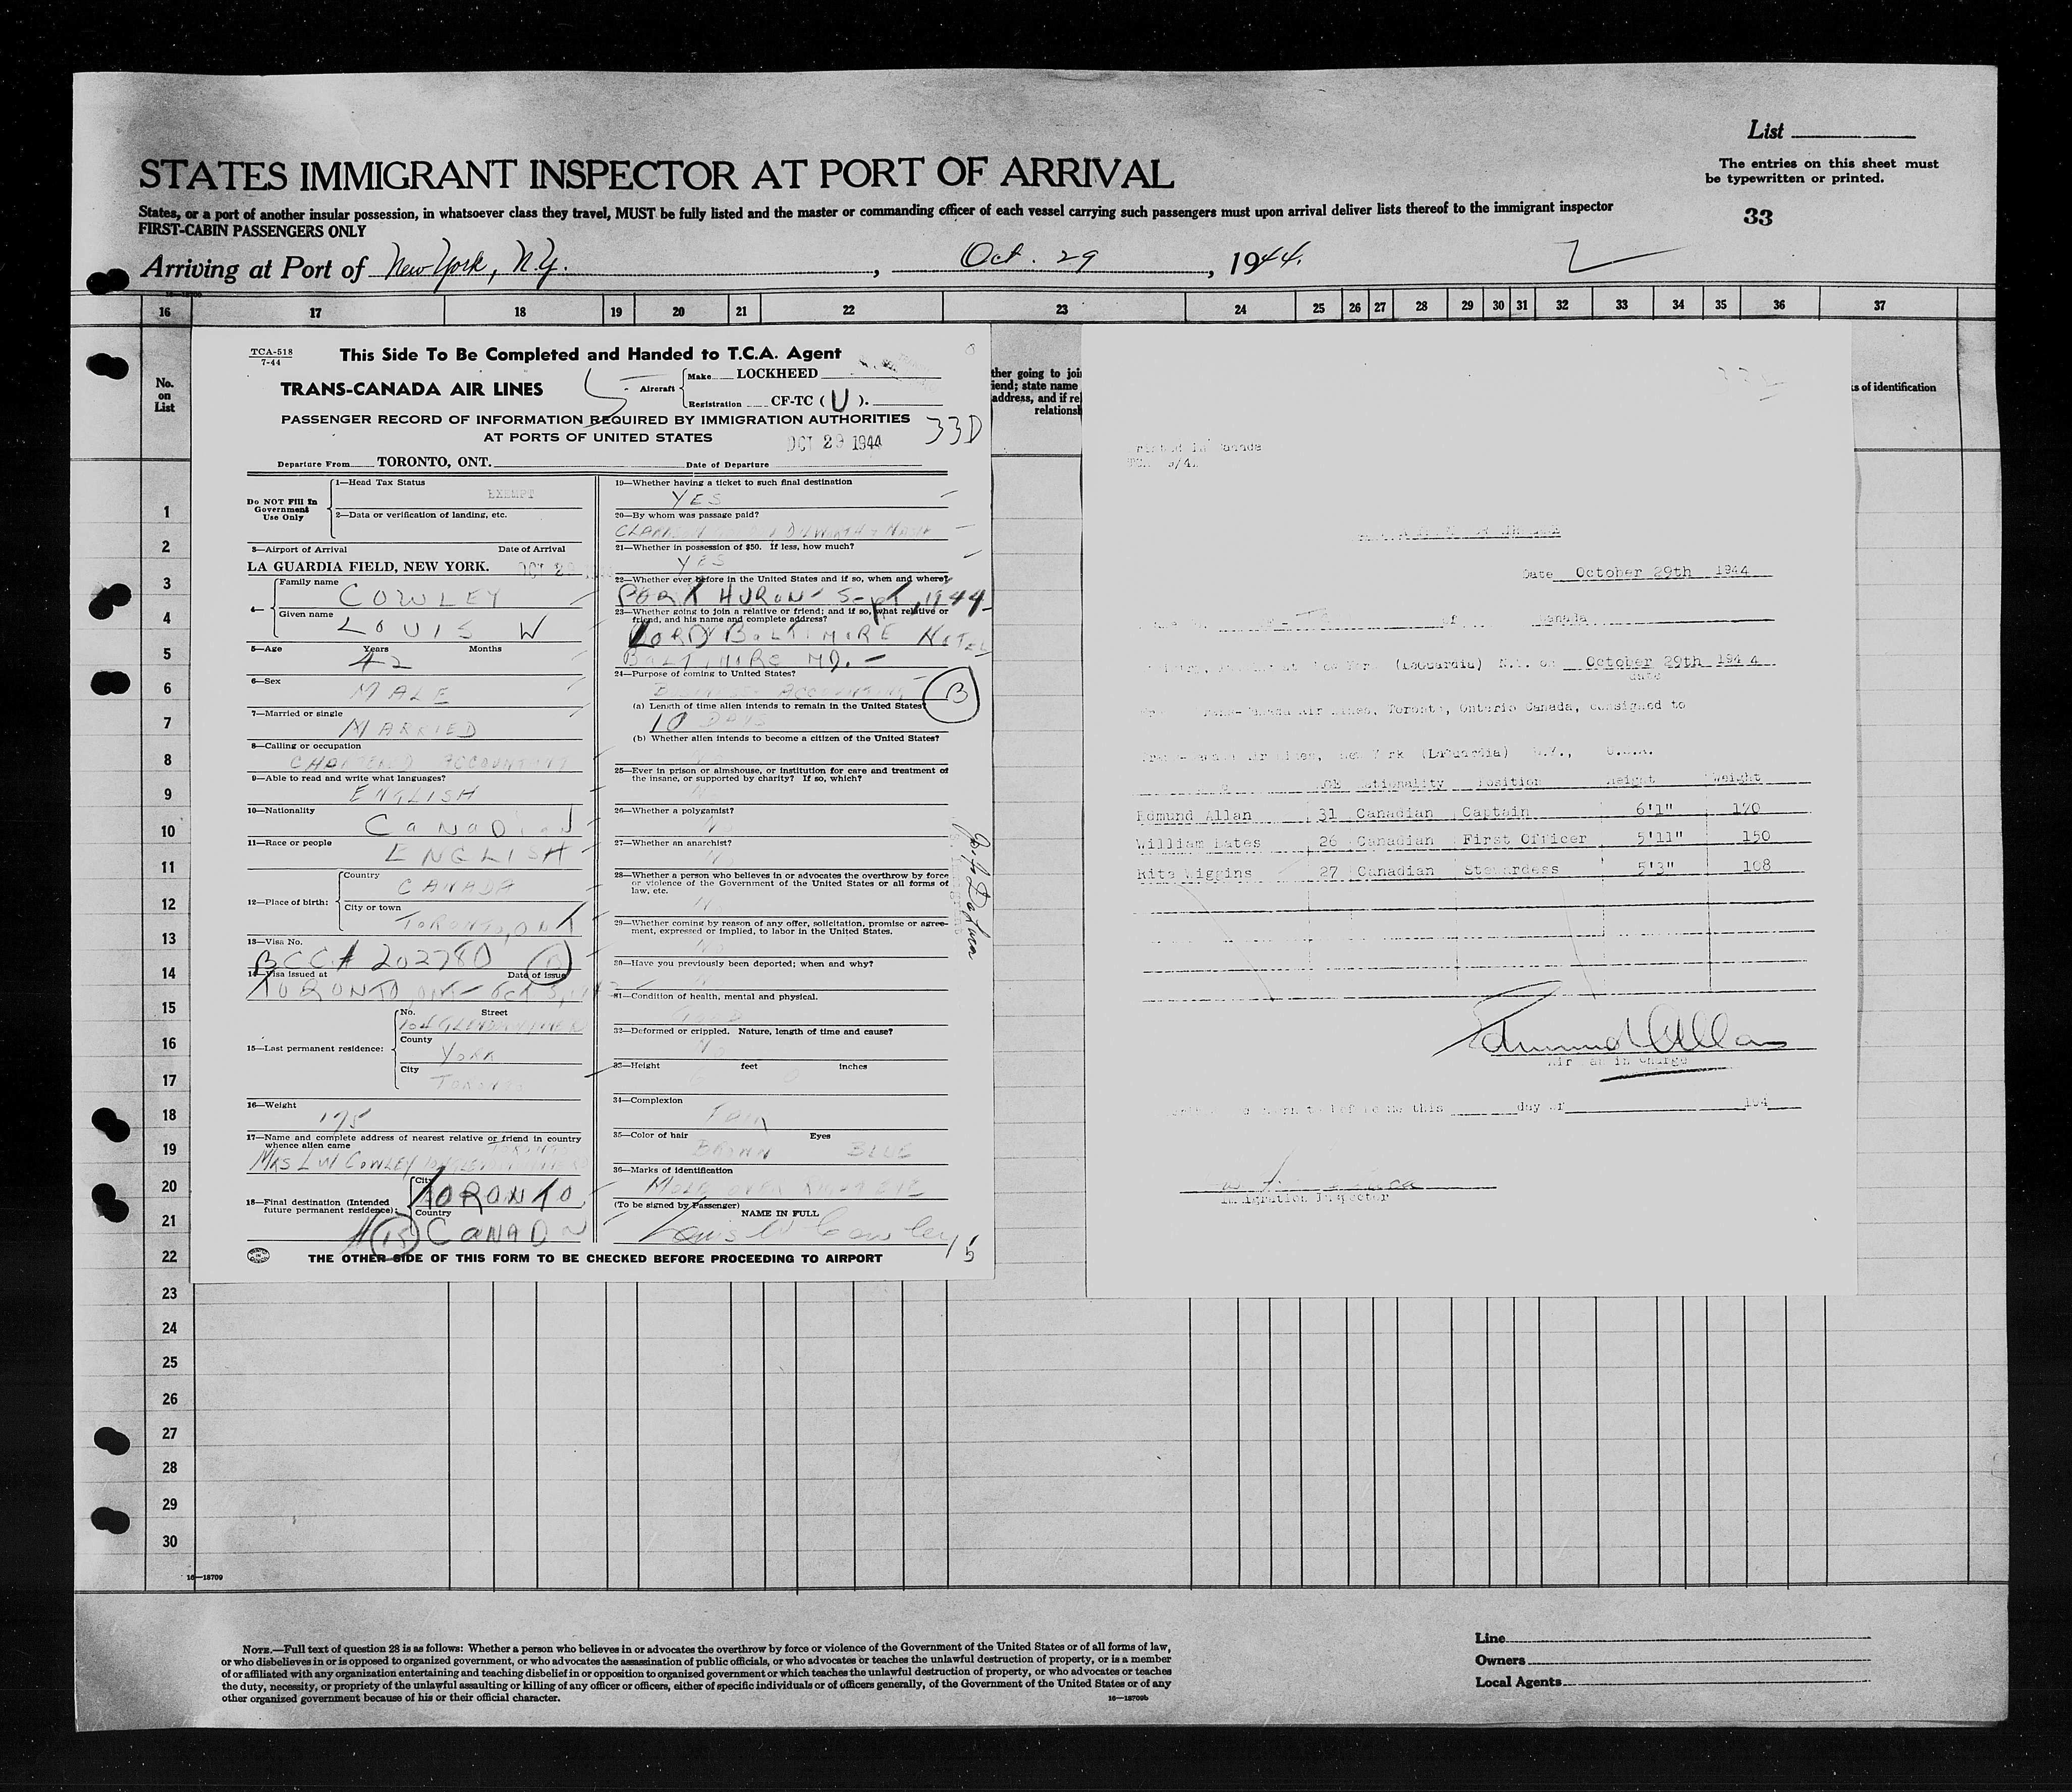 List
STATES IMMIGRANT INSPECTOR AT PORT OF ARRIVAL
The entries on this sheet must
be typewritten or printed.
States, or a port of another insular possession, in whatsoever class they travel, MUST be fully listed and the master or commanding officer of each vessel carrying such passengers must upon arrival deliver lists thereof to the immigrant inspector
FIRST-CABIN PASSENGERS ONLY
33
Arriving at Port of New York, N.Y. , Oct. 29 , 1944.
16 17 18 19 20 21 22 23 24 25 26 27 28 29 30 31 32 33 34 35 36 37
No.
on
List
TCA-518
7-44
This Side To Be Completed and Handed to T.C.A. Agent
TRANS-CANADA AIR LINES
5
Aircraft
Make LOCKHEED
Registration CF-TC (U).
PASSENGER RECORD OF INFORMATION REQUIRED BY IMMIGRATION AUTHORITIES
AT PORTS OF UNITED STATES
OCT 29 1944
33D
Departure From TORONTO, ONT.
Date of Departure
Do NOT Fill In
Government
Use Only
1—Head Tax Status
EXEMPT
2—Data or verification of landing, etc.
3—Airport of Arrival Date of Arrival
LA GUARDIA FIELD, NEW YORK. OCT 29
4—
Family name
COWLEY
Given name
LOUIS W
5—Age Years Months
42
6—Sex
MALE
7—Married or single
MARRIED
8—Calling or occupation
CHARTERED ACCOUNTANT
9—Able to read and write what languages?
ENGLISH
10—Nationality
CANADIAN
11—Race or people
ENGLISH
12—Place of birth:
Country
CANADA
City or town
TORONTO, ONT
13—Visa No.
BCC# 202780
14—Visa issued at Date of issue
TORONTO ONT— OCT 3,
15—Last permanent residence:
No. Street
104
County
YORK
City
TORONTO
16—Weight
175
17—Name and complete address of nearest relative or friend in country
whence alien came
MRS L W COWLEY
18—Final destination (Intended
future permanent residence):
City
TORONTO
Country
CANADA
19—Whether having a ticket to such final destination
YES
20—By whom was passage paid?
DILWORTH & NASH
21—Whether in possession of $50. If less, how much?
YES
22—Whether ever before in the United States and if so, when and where?
PORT HURON — Sept, 1944
23—Whether going to join a relative or friend; and if so, what relative or
friend, and his name and complete address?
LORD BALTIMORE HOTEL
BALTIMORE MD. —
24—Purpose of coming to United States?
BUSINESS - ACCOUNTING
B
(a) Length of time alien intends to remain in the United States?
10 DAYS
(b) Whether alien intends to become a citizen of the United States?
25—Ever in prison or almshouse, or institution for care and treatment of
the insane, or supported by charity? If so, which?
No
26—Whether a polygamist?
No
27—Whether an anarchist?
No
28—Whether a person who believes in or advocates the overthrow by force
or violence of the Government of the United States or all forms of
law, etc.
No
29—Whether coming by reason of any offer, solicitation, promise or agree-
ment, expressed or implied, to labor in the United States.
No
30—Have you previously been deported; when and why?
31—Condition of health, mental and physical.
GOOD
32—Deformed or crippled. Nature, length of time and cause?
No
33—Height feet inches
6 0
34—Complexion
FAIR
35—Color of hair Eyes
BROWN BLUE
36—Marks of identification
MOLE OVER RIGHT EYE
(To be signed by Passenger)
NAME IN FULL
Louis W Cowley
5
THE OTHER SIDE OF THIS FORM TO BE CHECKED BEFORE PROCEEDING TO AIRPORT
ther going to joi
iend; state name
address, and if re
relations
s of identification
Date October 29th 1944
of Canada
(LaGuardia) N.Y. on October 29th 1944
date
Trans-Canada Air Lines, Toronto, Ontario Canada, consigned to
Trans-Canada Air Lines, New York (LaGuardia) N.Y., U.S.A.
Age Nationality Position Height Weight
Edmund Allan 31 Canadian Captain 6'1" 170
William Bates 26 Canadian First Officer 5'11" 150
Rita Wiggins 27 Canadian Stewardess 5'3" 108
Edmund Allan
in Charge
sworn to before me this day of 194
Immigration Inspector
1
2
3
4
5
6
7
8
9
10
11
12
13
14
15
16
17
18
19
20
21
22
23
24
25
26
27
28
29
30
16—18709
NOTE.—Full text of question 28 is as follows: Whether a person who believes in or advocates the overthrow by force or violence of the Government of the United States or of all forms of law,
or who disbelieves in or is opposed to organized government, or who advocates the assassination of public officials, or who advocates or teaches the unlawful destruction of property, or is a member
of or affiliated with any organization entertaining and teaching disbelief in or opposition to organized government or which teaches the unlawful destruction of property, or who advocates or teaches
the duty, necessity, or propriety of the unlawful assaulting or killing of any officer or officers, either of specific individuals or of officers generally, of the Government of the United States or of any
other organized government because of his or their official character.
16—18709b
Line
Owners
Local Agents